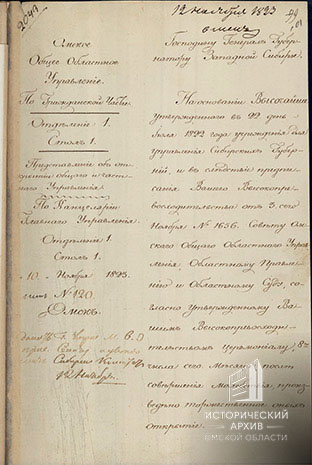 2049
12 ноября 1823
Омское
Общее Областное
Управленiе.
По Гражданской Части
Отделенiе 1.
Столъ 1.
Представляя объ от-
крытiи общаго и част-
наго Управленiя.
По Канцелярiи
Главнаго Управленiя
Отделенiя 1.
Столъ 1.
10. Ноября 1823.
№ 120.
Омскъ
12 Ноября
Господину Генералъ Губер-
натору Западной Сибири.
На основанiи Высочайше
утвержденнаго въ 22 день
Iюля 1822 года учрежденiя для
управленiя Сибирскихъ Губер-
нiй, и въ следствiе предпи-
санiя Вашего Высокопре-
восходительства отъ 3. сего
Ноября № 1636. Совету Ом-
скаго Общаго Областнаго Упра-
вленiя, Областному Правле-
нiю и Областному Суду, со-
гласно утвержденному Ва-
шимъ Высокопревосходи-
тельствомъ Церемонiалу, 8
числа сего Месяца, по
совершенiи молебства, произ-
ведено торжественно
открытiе.
ИСТОРИЧЕСКИЙ
АРХИВ
ОМСКОЙ ОБЛАСТИ